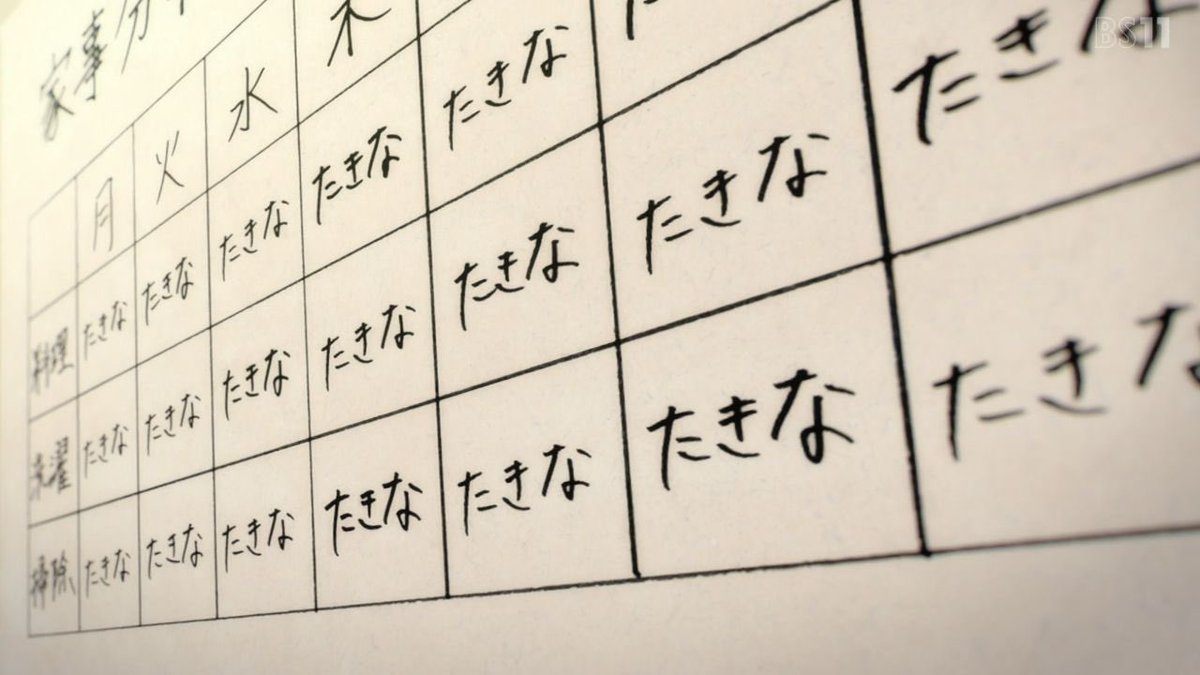 BS11
家事分
月 火 水 木
料理 たきな たきな たきな たきな たきな た
洗濯 たきな たきな たきな たきな たきな たきな たきな
掃除 たきな たきな たきな たきな たきな たきな たきな